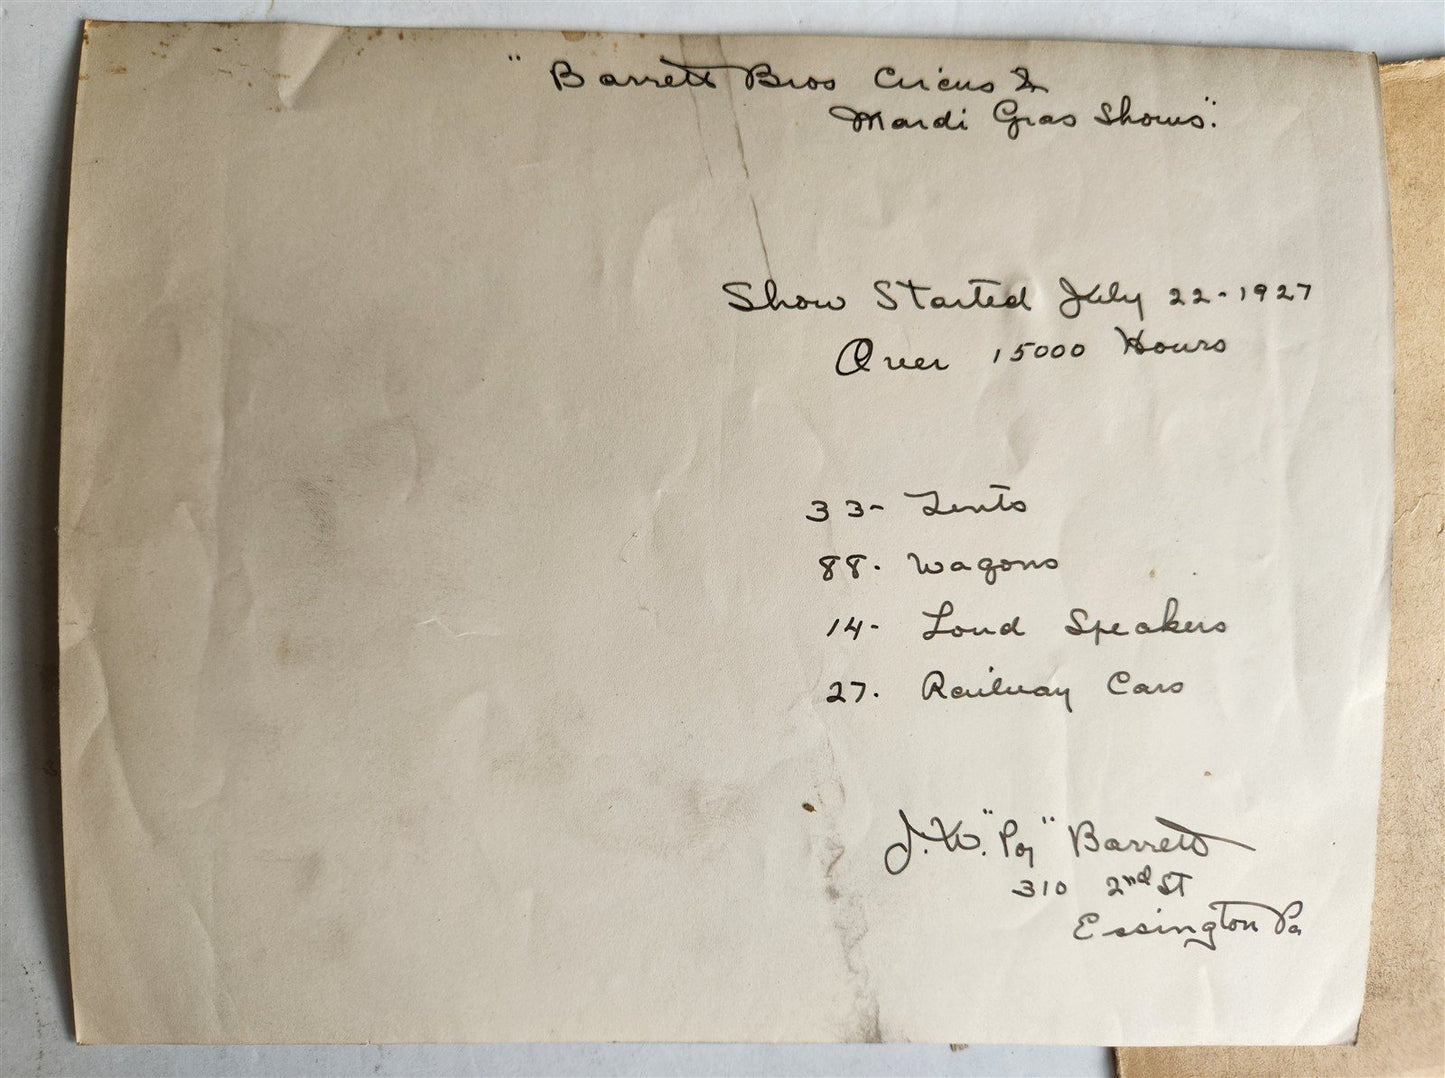 "Barrett Bros Circus &
Mardi Gras Shows".
Show Started July 22-1927
Over 15000 Hours
33- Tents
88. Wagons
14- Loud Speakers
27. Railway Cars
J. W. "Pop" Barrett
310 2nd St
Essington Pa